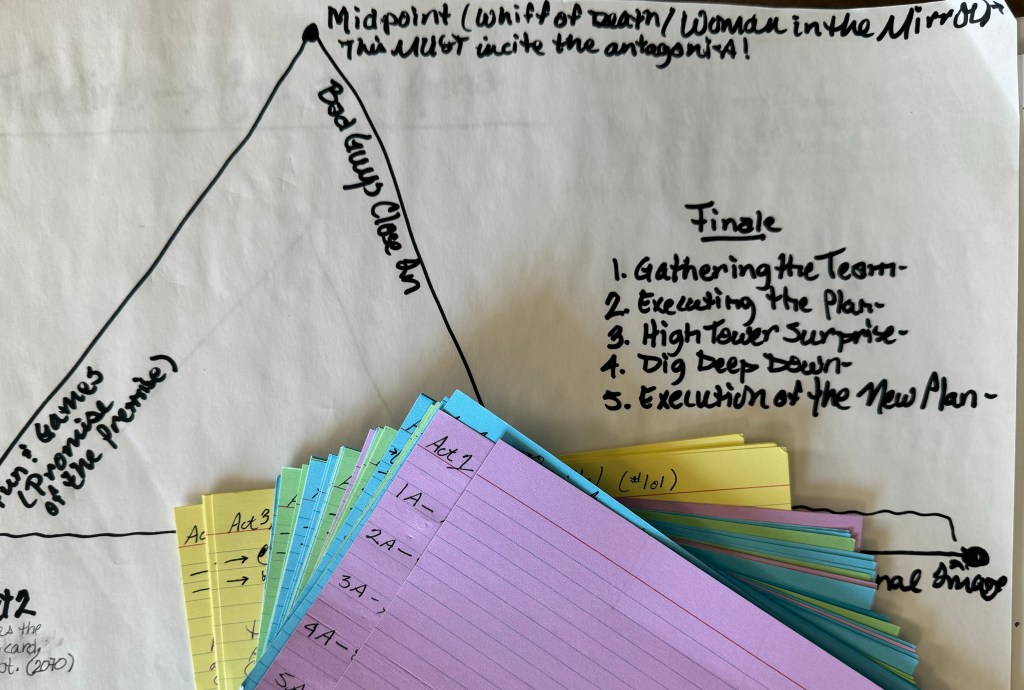 Midpoint (Whiff of Death/Woman in the Mirror)→
This MUST incite the antagonist!
Bad Guys Close In
Finale
1. Gathering the Team-
2. Executing the Plan-
3. High Tower Surprise-
4. Dig Deep Down-
5. Execution of the New Plan-
Games
(Promise
of the Premise)
(#101)
Act 1
1A-
2A-
3A-
4A-
5A
Act 3
→
→
Image
card,
(20%)